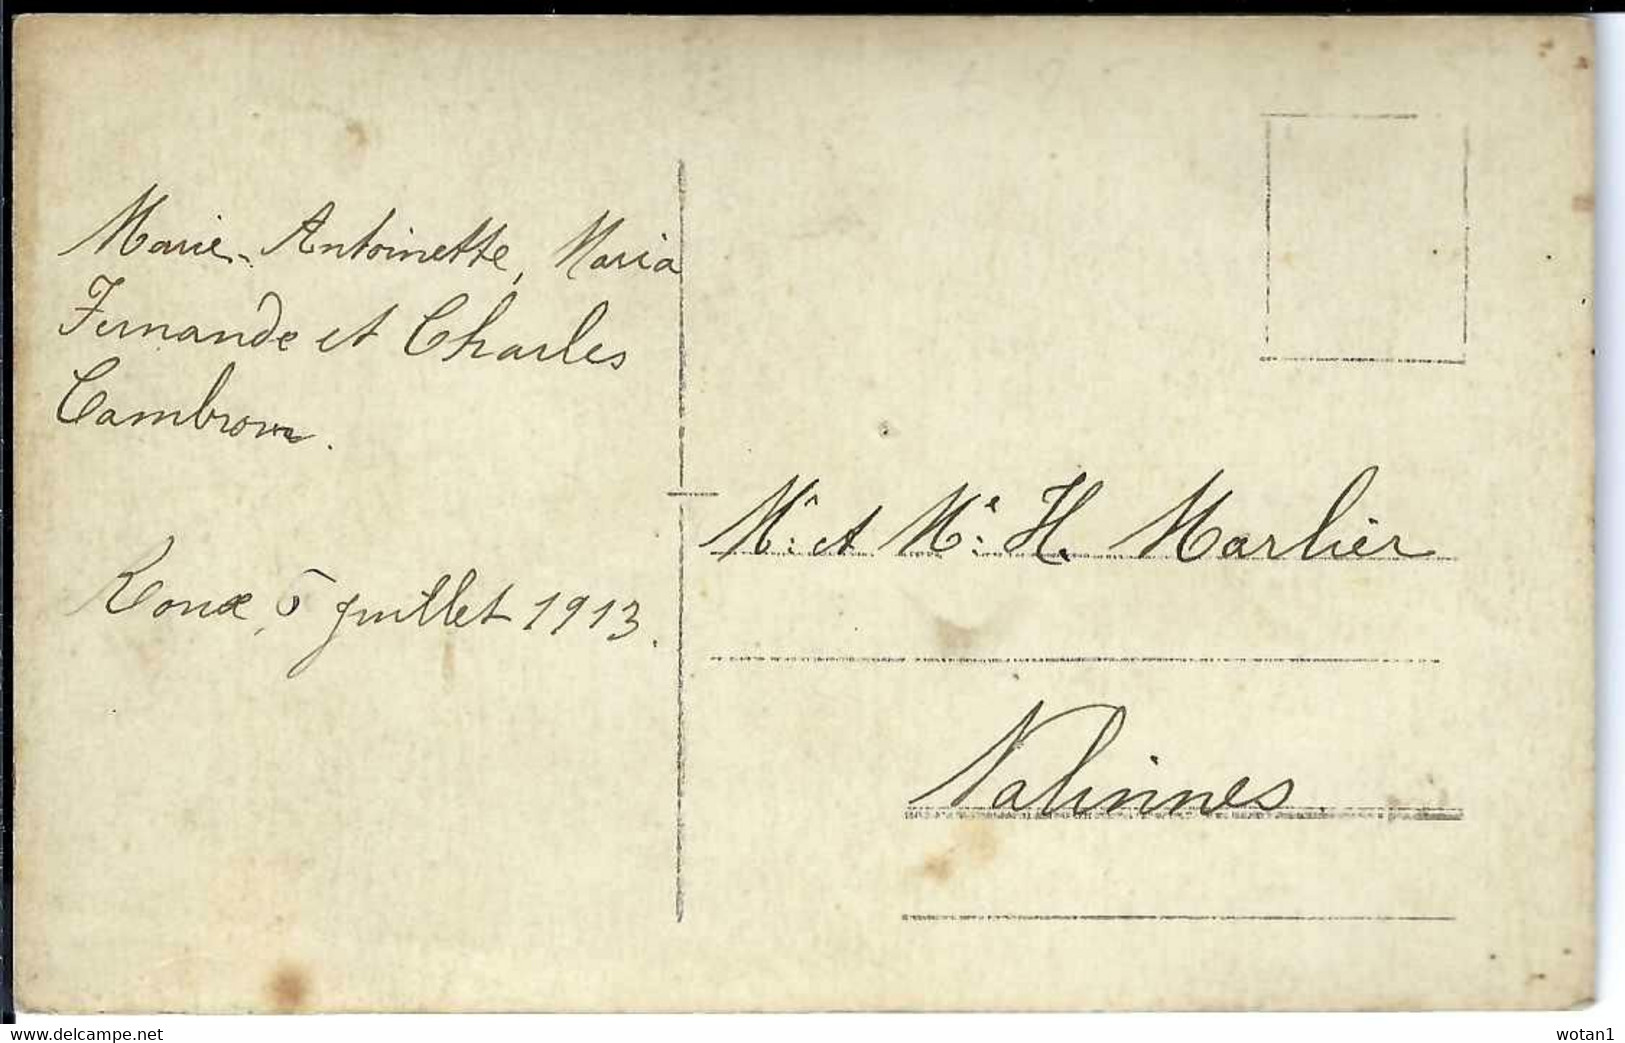 Marie-Antoinette, Maria
Fernande et Charles
Cambron.
Roux, 5 juillet 1913.
Mr. et Me. H. Marlier
Nalinnes.
www.delcampe.net
wotan1